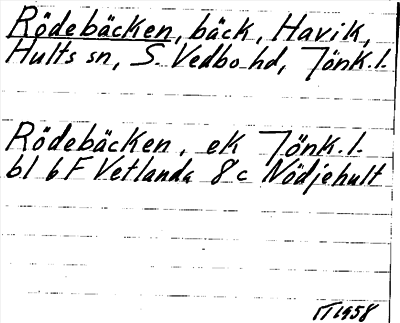 Rödebäcken, bäck, Havik,
Hults sn, S. Vedbo hd, Jönk.l.
Rödebäcken, ek Jönk.l.
bl 6F Vetlanda 8c Nödjehult
1958